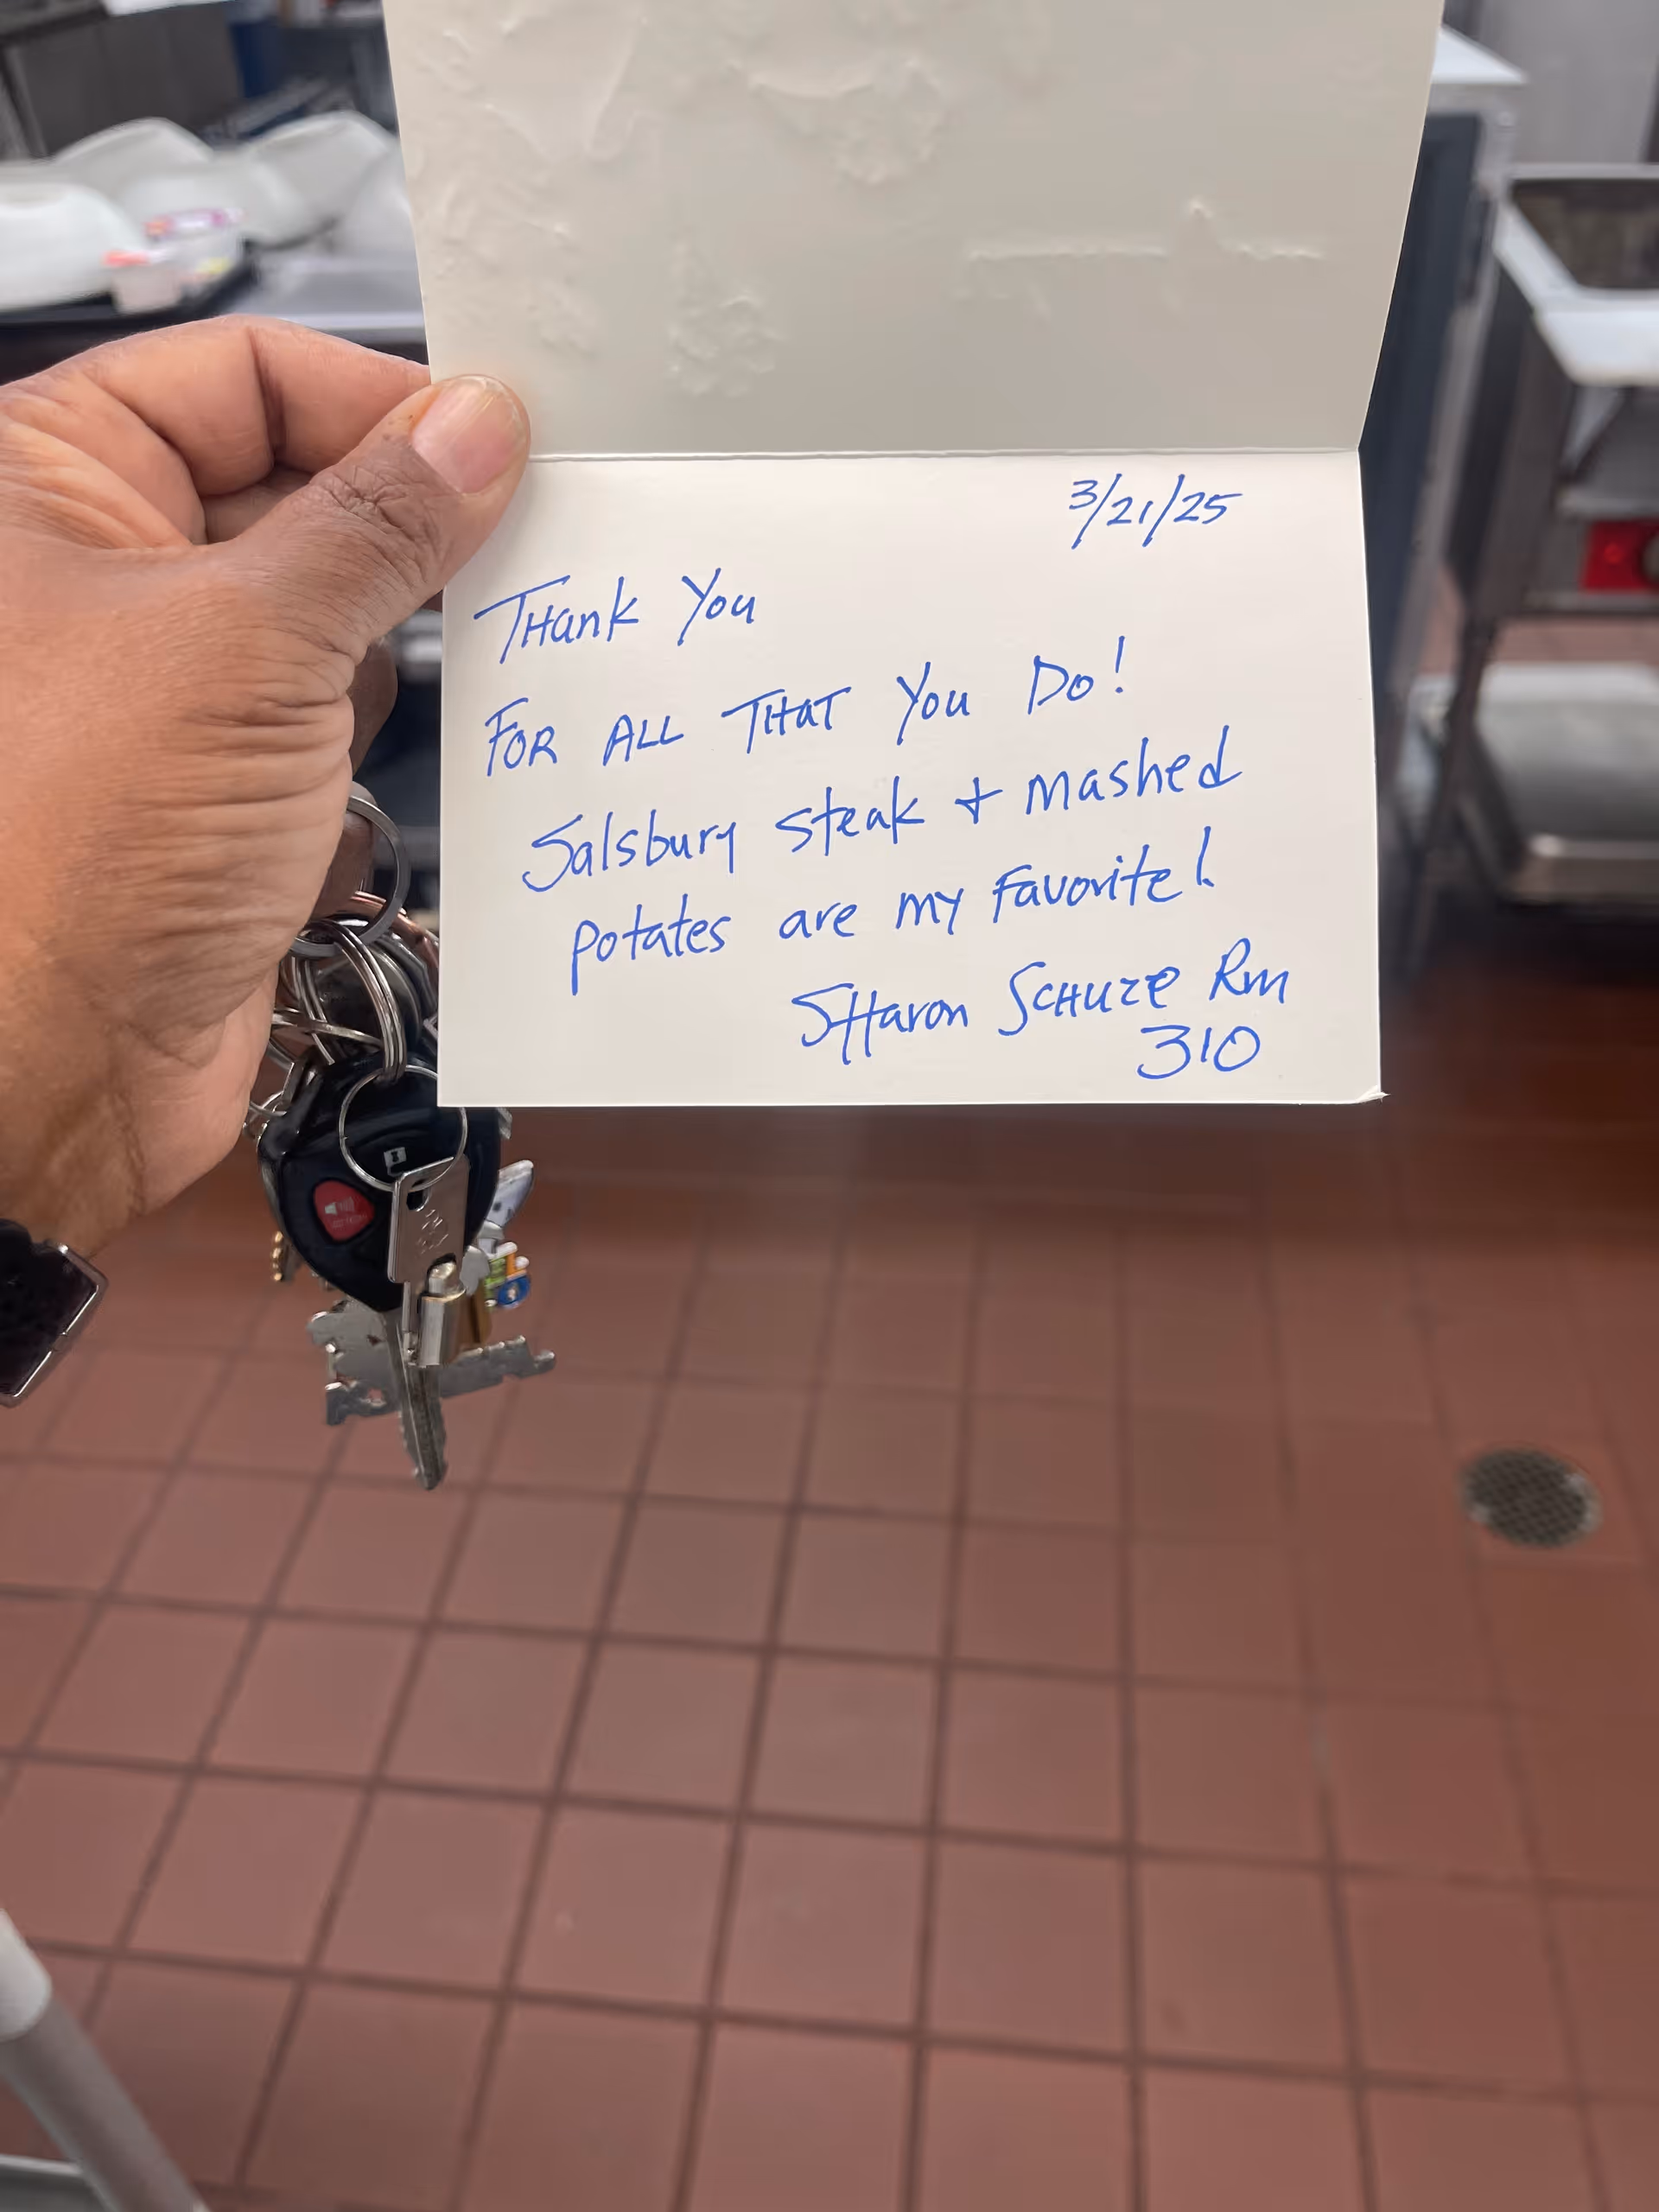 3/21/25
THank You
FOR ALL THaT You Do!
Salsbury steak + mashed
potates are my favorite!
SHaron SCHUZE Rm
310